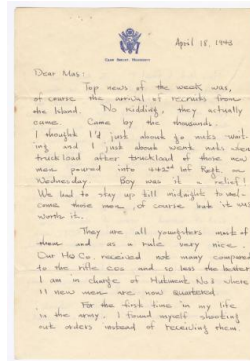 CAMP SHELBY, MISSISSIPPI
April 18, 1943
Dear Mas:
Top news of the week was,
of course the arrival of recruits from
the Island. No kidding, they actually
came. Came by the thousands.
I thought I'd just about go nuts wait-
ing and I just about went nuts when
truckload after truckload of those new
men poured into 442nd Regt. on
Wednesday. Boy was it a relief!
We had to stay up till midnight to wel-
come those men, of course but it was
worth it.
They are all youngsters most of
them and as a rule very nice.
Our Hq Co. received not many compared
to the rifle cos and so less the
I am in charge of Hutment No 8 where
11 new men are now quartered.
For the first time in my life
in the army, I found myself shooting
out orders instead of receiving them.